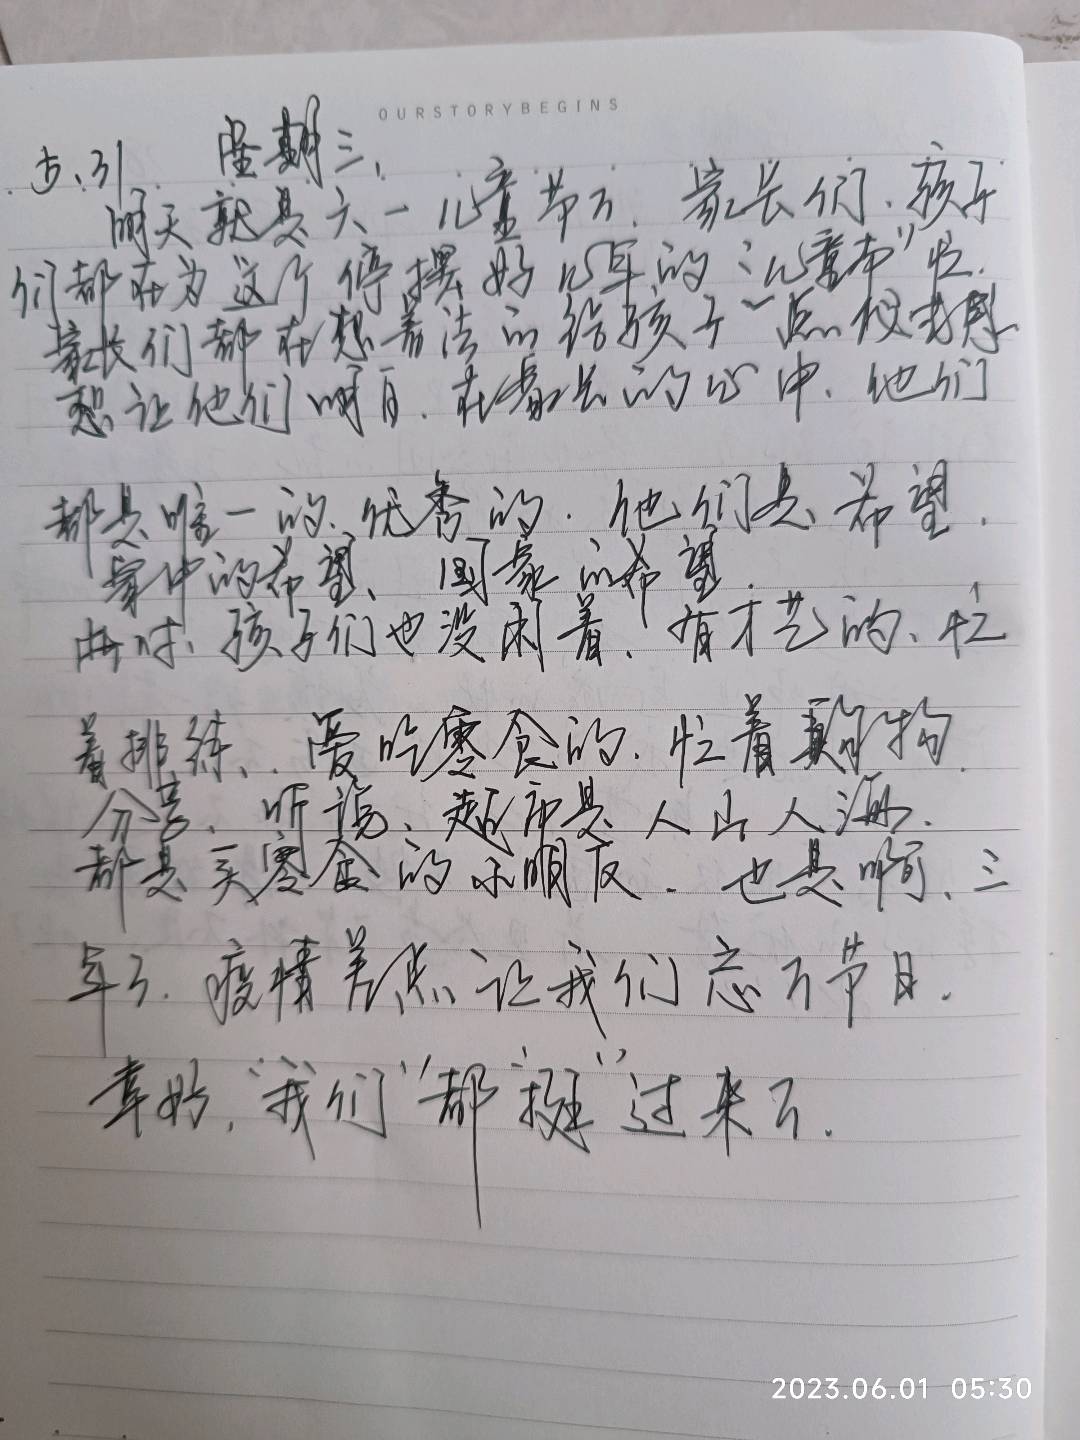 OURSTORYBEGINS
5.31 星期三.
明天就是六一儿童节了.家长们.孩子
们都在为这个停摆好几年的“儿童节”忙.
家长们都在想着法的给孩子一点仪式感
想让他们明白.在家长的心中.他们
都是唯一的.优秀的.他们是希望.
家中的希望、国家的希望.
此时.孩子们也没闲着.有才艺的、忙
着排练、爱吃零食的.忙着购物
分享.听说、超市是人山人海.
都是买零食的小朋友.也是啊、三
年了.疫情差点让我们忘了节日.
幸好,“我们”都“挺”过来了.
2023.06.01 05:30